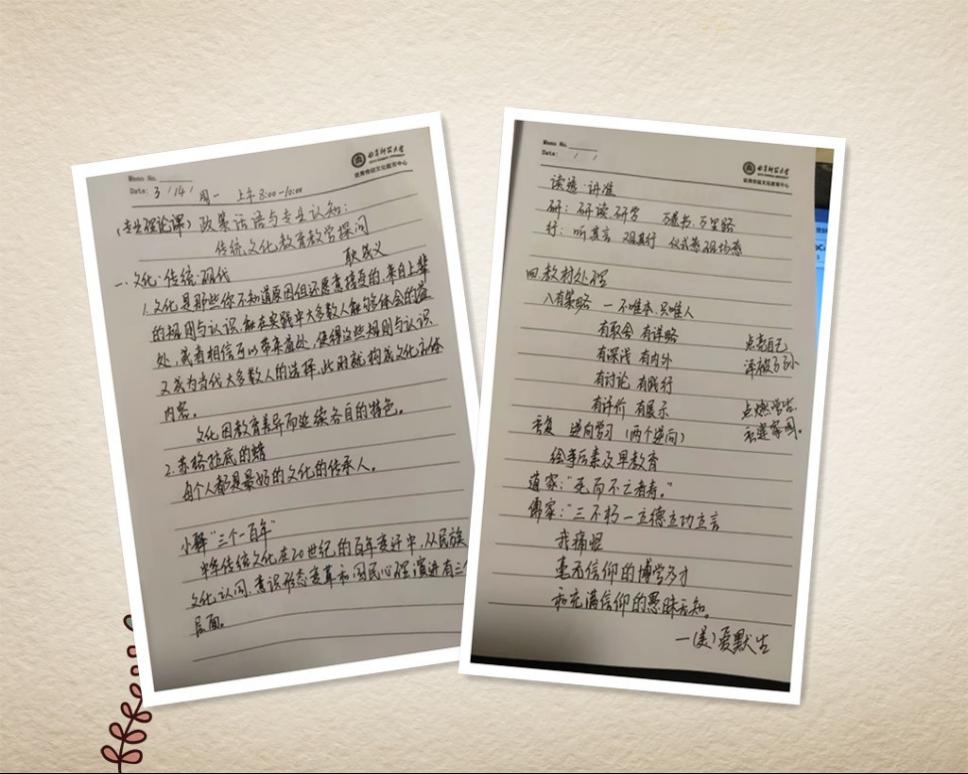 Memo No.
Date: 3 / 14 / 周一 上午 8:00-10:00
南京师范大学
(专业理论课) 政策话语与专业认知:
传统文化教育教学探问
耿成义
一、文化·传统·现代
1.文化是那些你不知道原因但还愿意接受的,来自上辈
的规则与认识,能在实践中大多数人能够体会的益
处,或者相信可以带来益处,使得这些规则与认识
又成为当代大多数人的选择,此时就构成文化主体
内容。
文化因教育差异而延续各自的特色。
2.苏格拉底的蜡
每个人都是最好的文化的传承人。
小释"三个一百年"
中华传统文化在20世纪的百年变迁中,从民族
文化认同,意识形态变革和国民心理演进有三个
层面。
Memo No.
Date: / /
读透·讲准
研:研读,研学 万卷书,万里路
行:听其言 观其行 仪式感现场感
四.教材处理
八有策略 一不唯本,只唯人
有取舍 有详略
有深浅 有内外
有讨论 有践行
有评价 有展示
点亮自己
泽被子孙
点燃学生
逆向学习 (两个逆向)
绘事后素及早教育
道家:"死而不亡者寿。"
儒家:"三不朽—立德立功立言
我痛恨
毫无信仰的博学多才
和充满信仰的愚昧无知。
—(美)爱默生